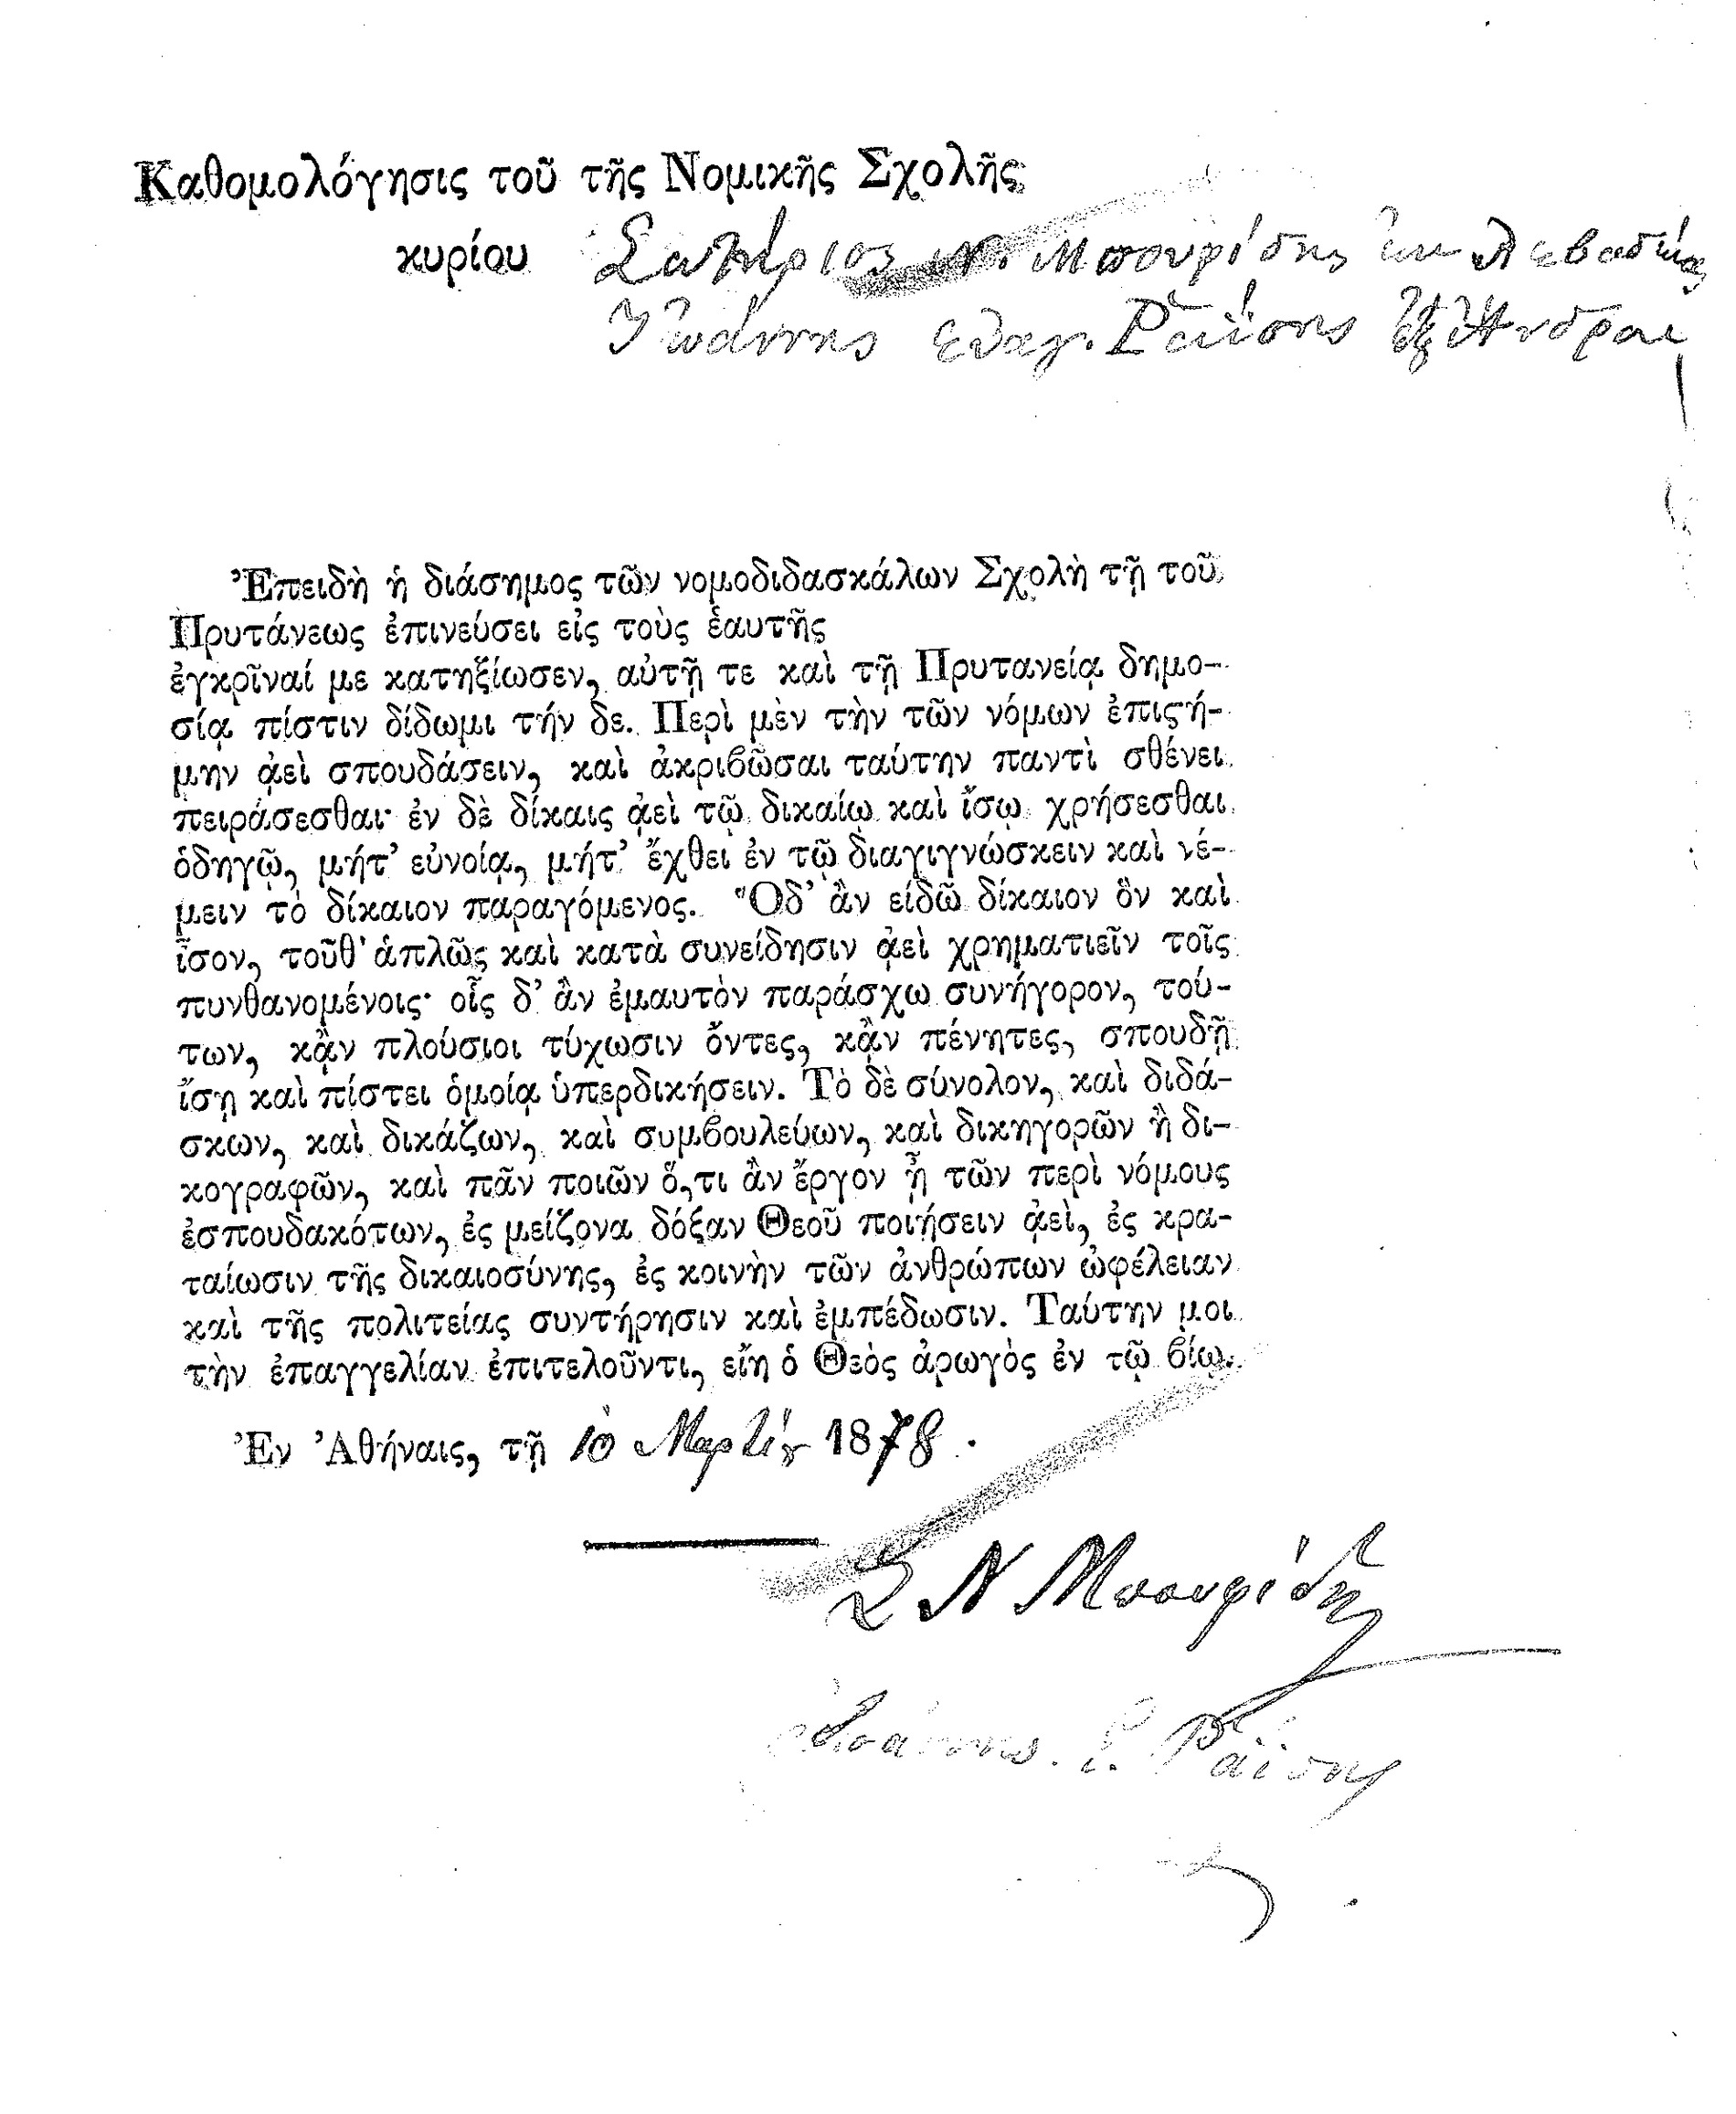 Καθομολόγησις τοῦ τῆς Νομικῆς Σχολῆς
κυρίου Σωτήριος Ν. Μπουφίδης ἐκ Λεβαδείας
Ἰωάννης Εὐαγ. Ῥάϊσης ἐξ Ἄνδρου
Ἐπειδὴ ἡ διάσημος τῶν νομοδιδασκάλων Σχολὴ τῇ τοῦ
Πρυτάνεως ἐπινεύσει εἰς τοὺς ἑαυτῆς
ἐγκρῖναί με κατηξίωσεν, αὐτῇ τε καὶ τῇ Πρυτανείᾳ δημο-
σίᾳ πίστιν δίδωμι τήν δε. Περὶ μὲν τὴν τῶν νόμων ἐπιςή-
μην ᾀεὶ σπουδάσειν, καὶ ἀκριβῶσαι ταύτην παντὶ σθένει
πειράσεσθαι· ἐν δὲ δίκαις ᾀεὶ τῷ δικαίῳ καὶ ἴσῳ χρήσεσθαι
ὁδηγῷ, μήτ' εὐνοίᾳ, μήτ' ἔχθει ἐν τῷ διαγιγνώσκειν καὶ νέ-
μειν τὸ δίκαιον παραγόμενος. Ὃδ' ἂν εἰδῶ δίκαιον ὂν καὶ
ἶσον, τοῦθ' ἁπλῶς καὶ κατὰ συνείδησιν ᾀεὶ χρηματιεῖν τοῖς
πυνθανομένοις· οἷς δ' ἂν ἐμαυτὸν παράσχω συνήγορον, τού-
των, κᾂν πλούσιοι τύχωσιν ὄντες, κᾂν πένητες, σπουδῇ
ἴσῃ καὶ πίστει ὁμοίᾳ ὑπερδικήσειν. Τὸ δὲ σύνολον, καὶ διδά-
σκων, καὶ δικάζων, καὶ συμβουλεύων, καὶ δικηγορῶν ἢ δι-
κογραφῶν, καὶ πᾶν ποιῶν ὅ,τι ἂν ἔργον ᾖ τῶν περὶ νόμους
ἐσπουδακότων, ἐς μείζονα δόξαν Θεοῦ ποιήσειν ᾀεὶ, ἐς κρα-
ταίωσιν τῆς δικαιοσύνης, ἐς κοινὴν τῶν ἀνθρώπων ὠφέλειαν
καὶ τῆς πολιτείας συντήρησιν καὶ ἐμπέδωσιν. Ταύτην μοι
τὴν ἐπαγγελίαν ἐπιτελοῦντι, εἴη ὁ Θεὸς ἀρωγὸς ἐν τῷ βίῳ.
Ἐν Ἀθήναις, τῇ 10 Μαρτίου 1878.
Σ Ν Μπουφίδης
Ἰωάννης Ε. Ῥάϊσης